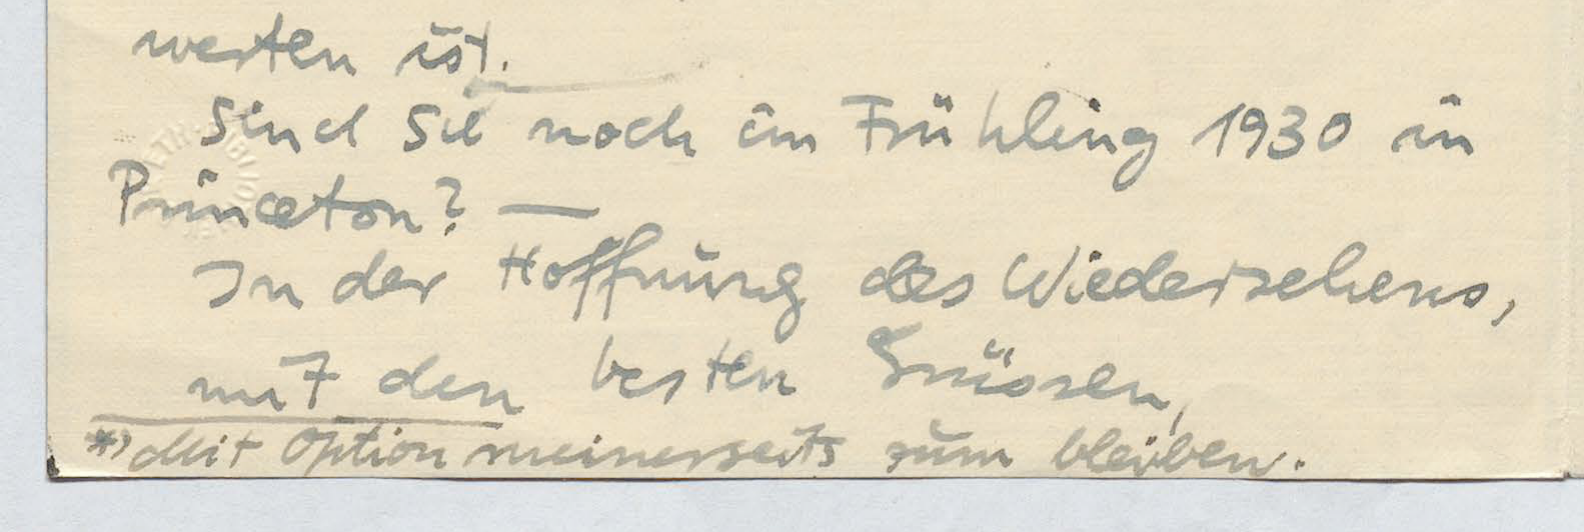 werten ist.
Sind Sie noch im Frühling 1930 in
Princeton? —
In der Hoffnung des Wiedersehens,
mit den besten Grüssen,
*) Mit Option meinerseits zum bleiben.